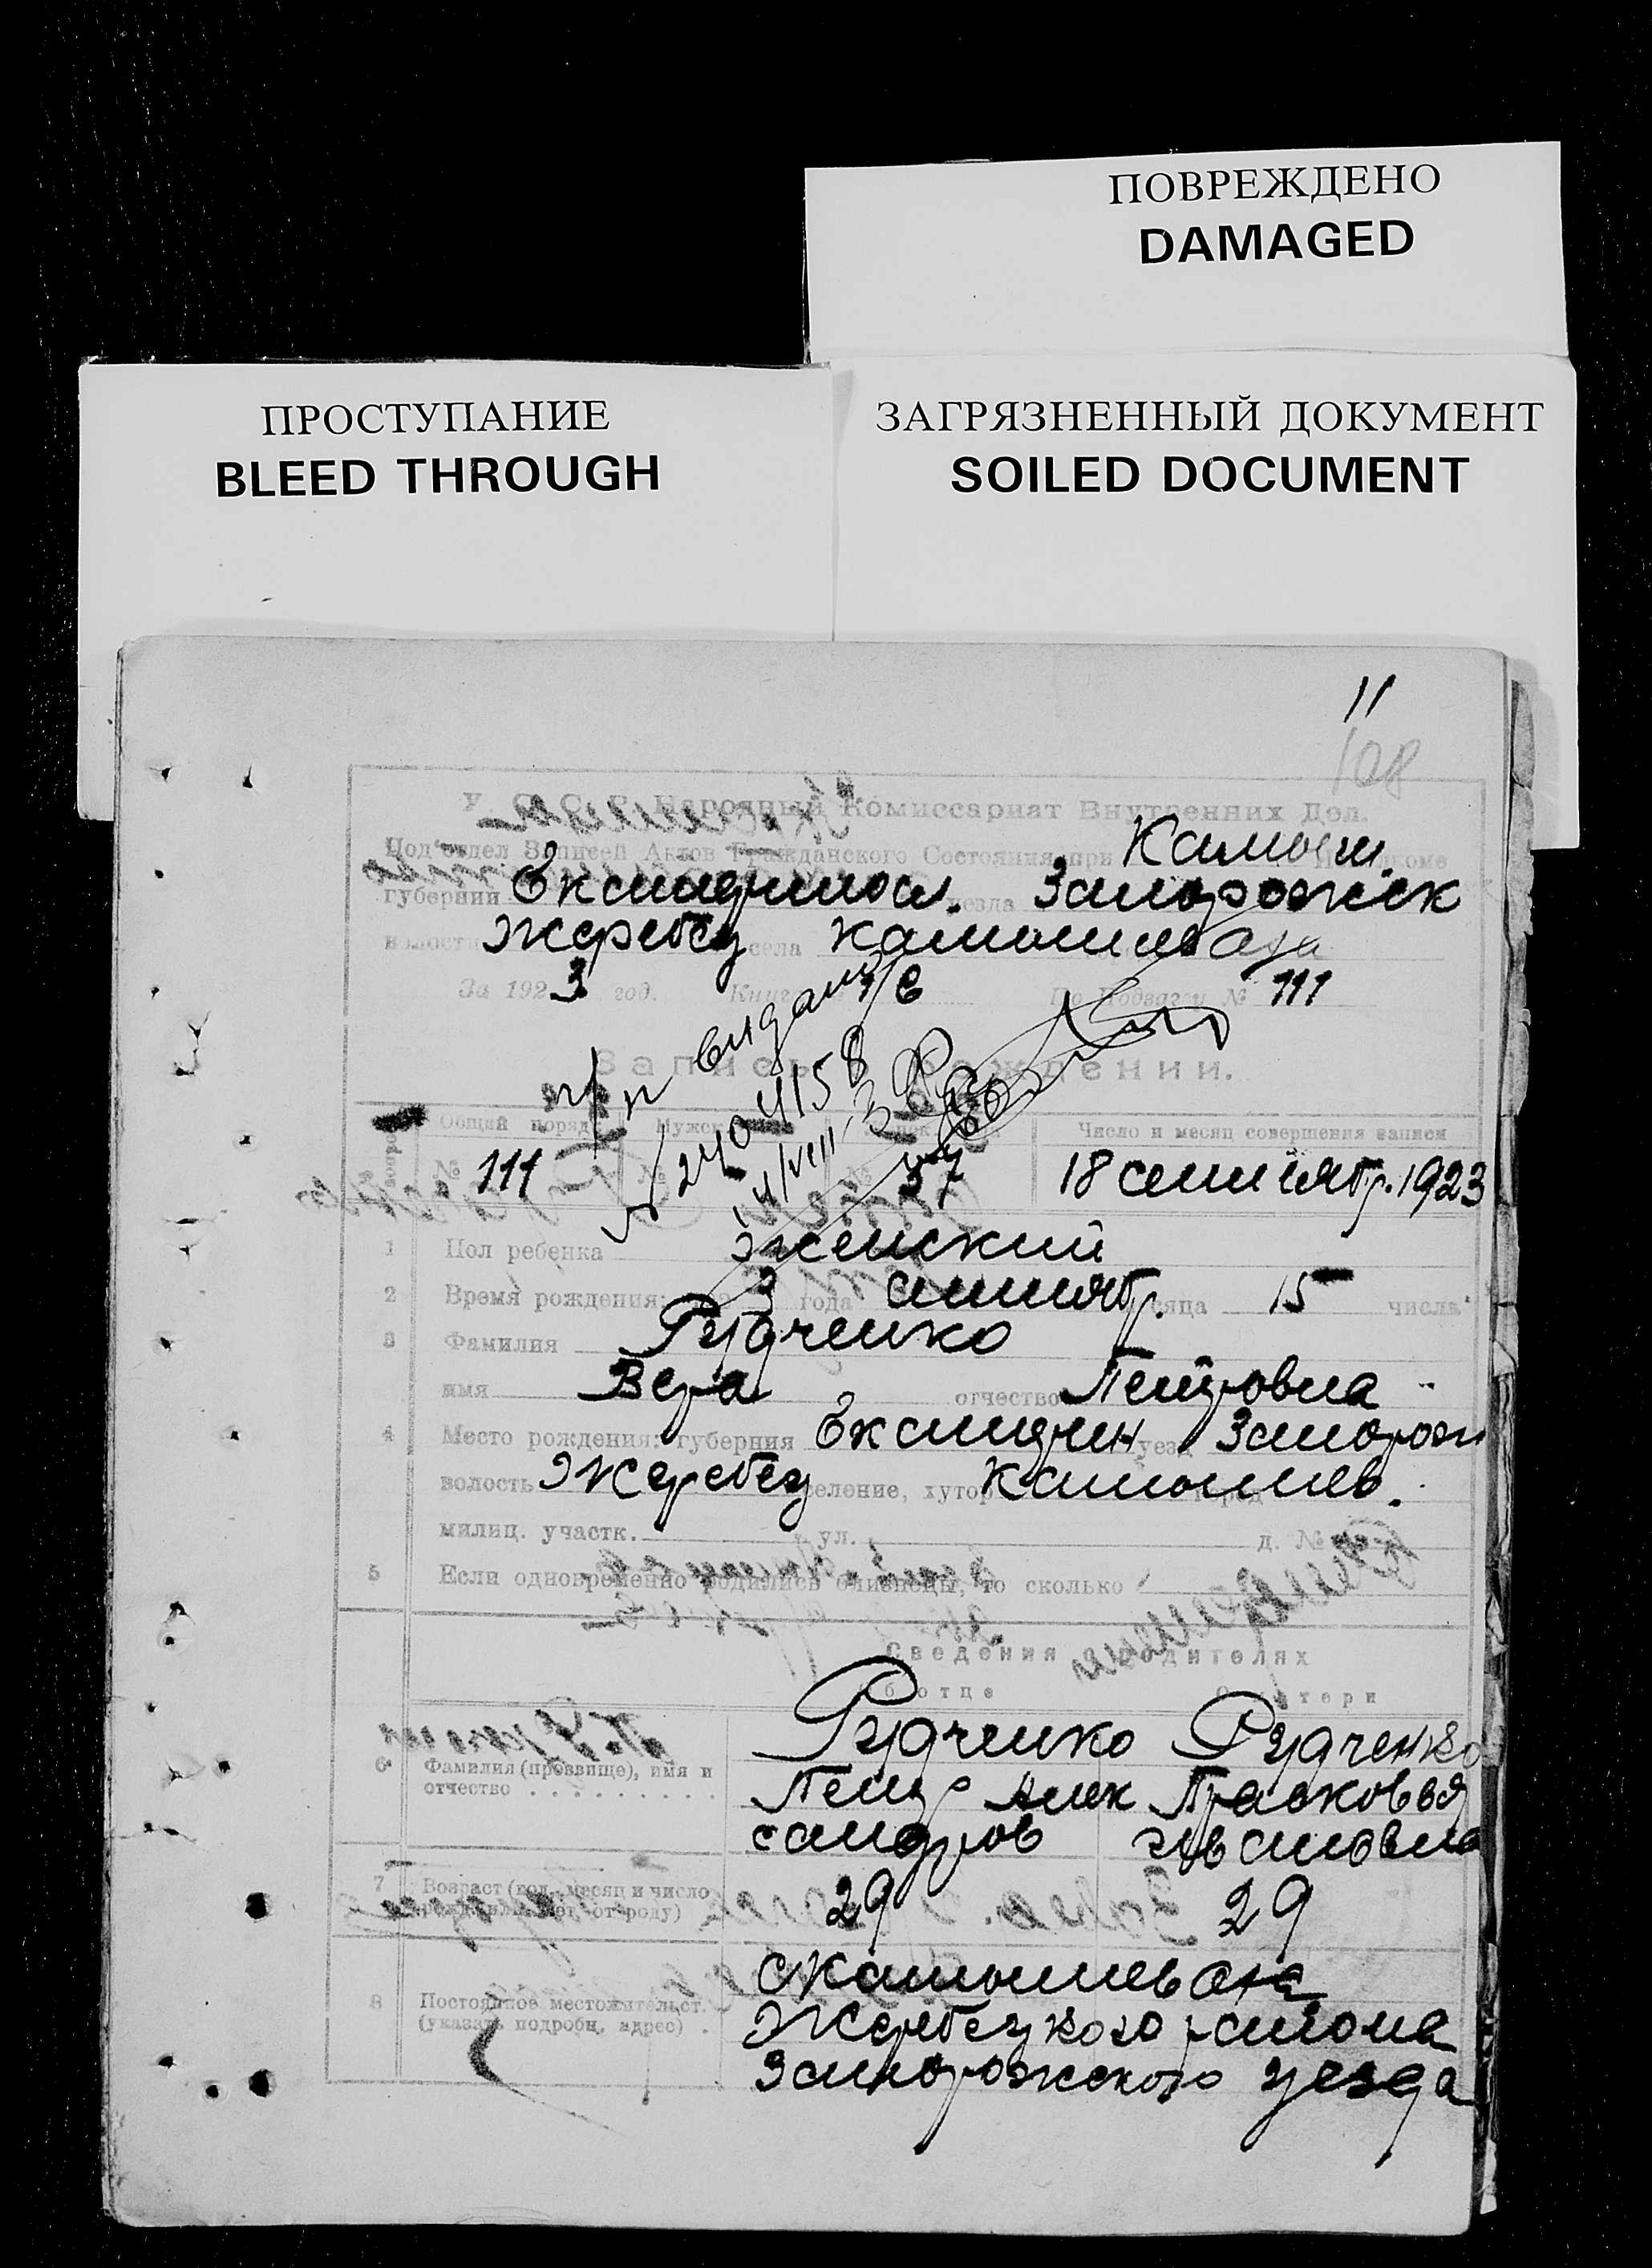 ПОВРЕЖДЕНО
DAMAGED
ПРОСТУПАНИЕ
BLEED THROUGH
ЗАГРЯЗНЕННЫЙ ДОКУМЕНТ
SOILED DOCUMENT
11
108
У. С. С. Р. Народный Комиссариат Внутренних Дел.
Под'отдел Записей Актов Гражданского Состояния при Камыш
губернии Екатериносл. уезда Запорожск
волости Жеребец села Камышеваха
За 1923 год. По Подвягги № 111
п/п выдано
2404158
Запись о рождении.
Общий поряд. Мужск. Женск. Число и месяц совершения записи
№ 111 № № 57 18 сентябр. 1923
1 Пол ребенка Женский
2 Время рождения: 3 года сентябр. месяца 15 числа
3 Фамилия Рудченко
имя Вера отчество Петровна
4 Место рождения: губерния Екатерин уезд Запорож
волость Жеребец селение, хутор Камышев.
милиц. участк. ул. д. №
5 Если одновременно родились близнецы, то сколько
Сведения о родителях
Об отце О матери
6 Фамилия (прозвище), имя и отчество Рудченко Рудченко
Петр Алек Прасковья
сандров Ивановна
7 Возраст (год, месяц и число рождения лет от роду) 29 29
8 Постоянное местожительст. (указать подробн. адрес) с Камышеваха
Жеребецкого района
Запорожского уезда